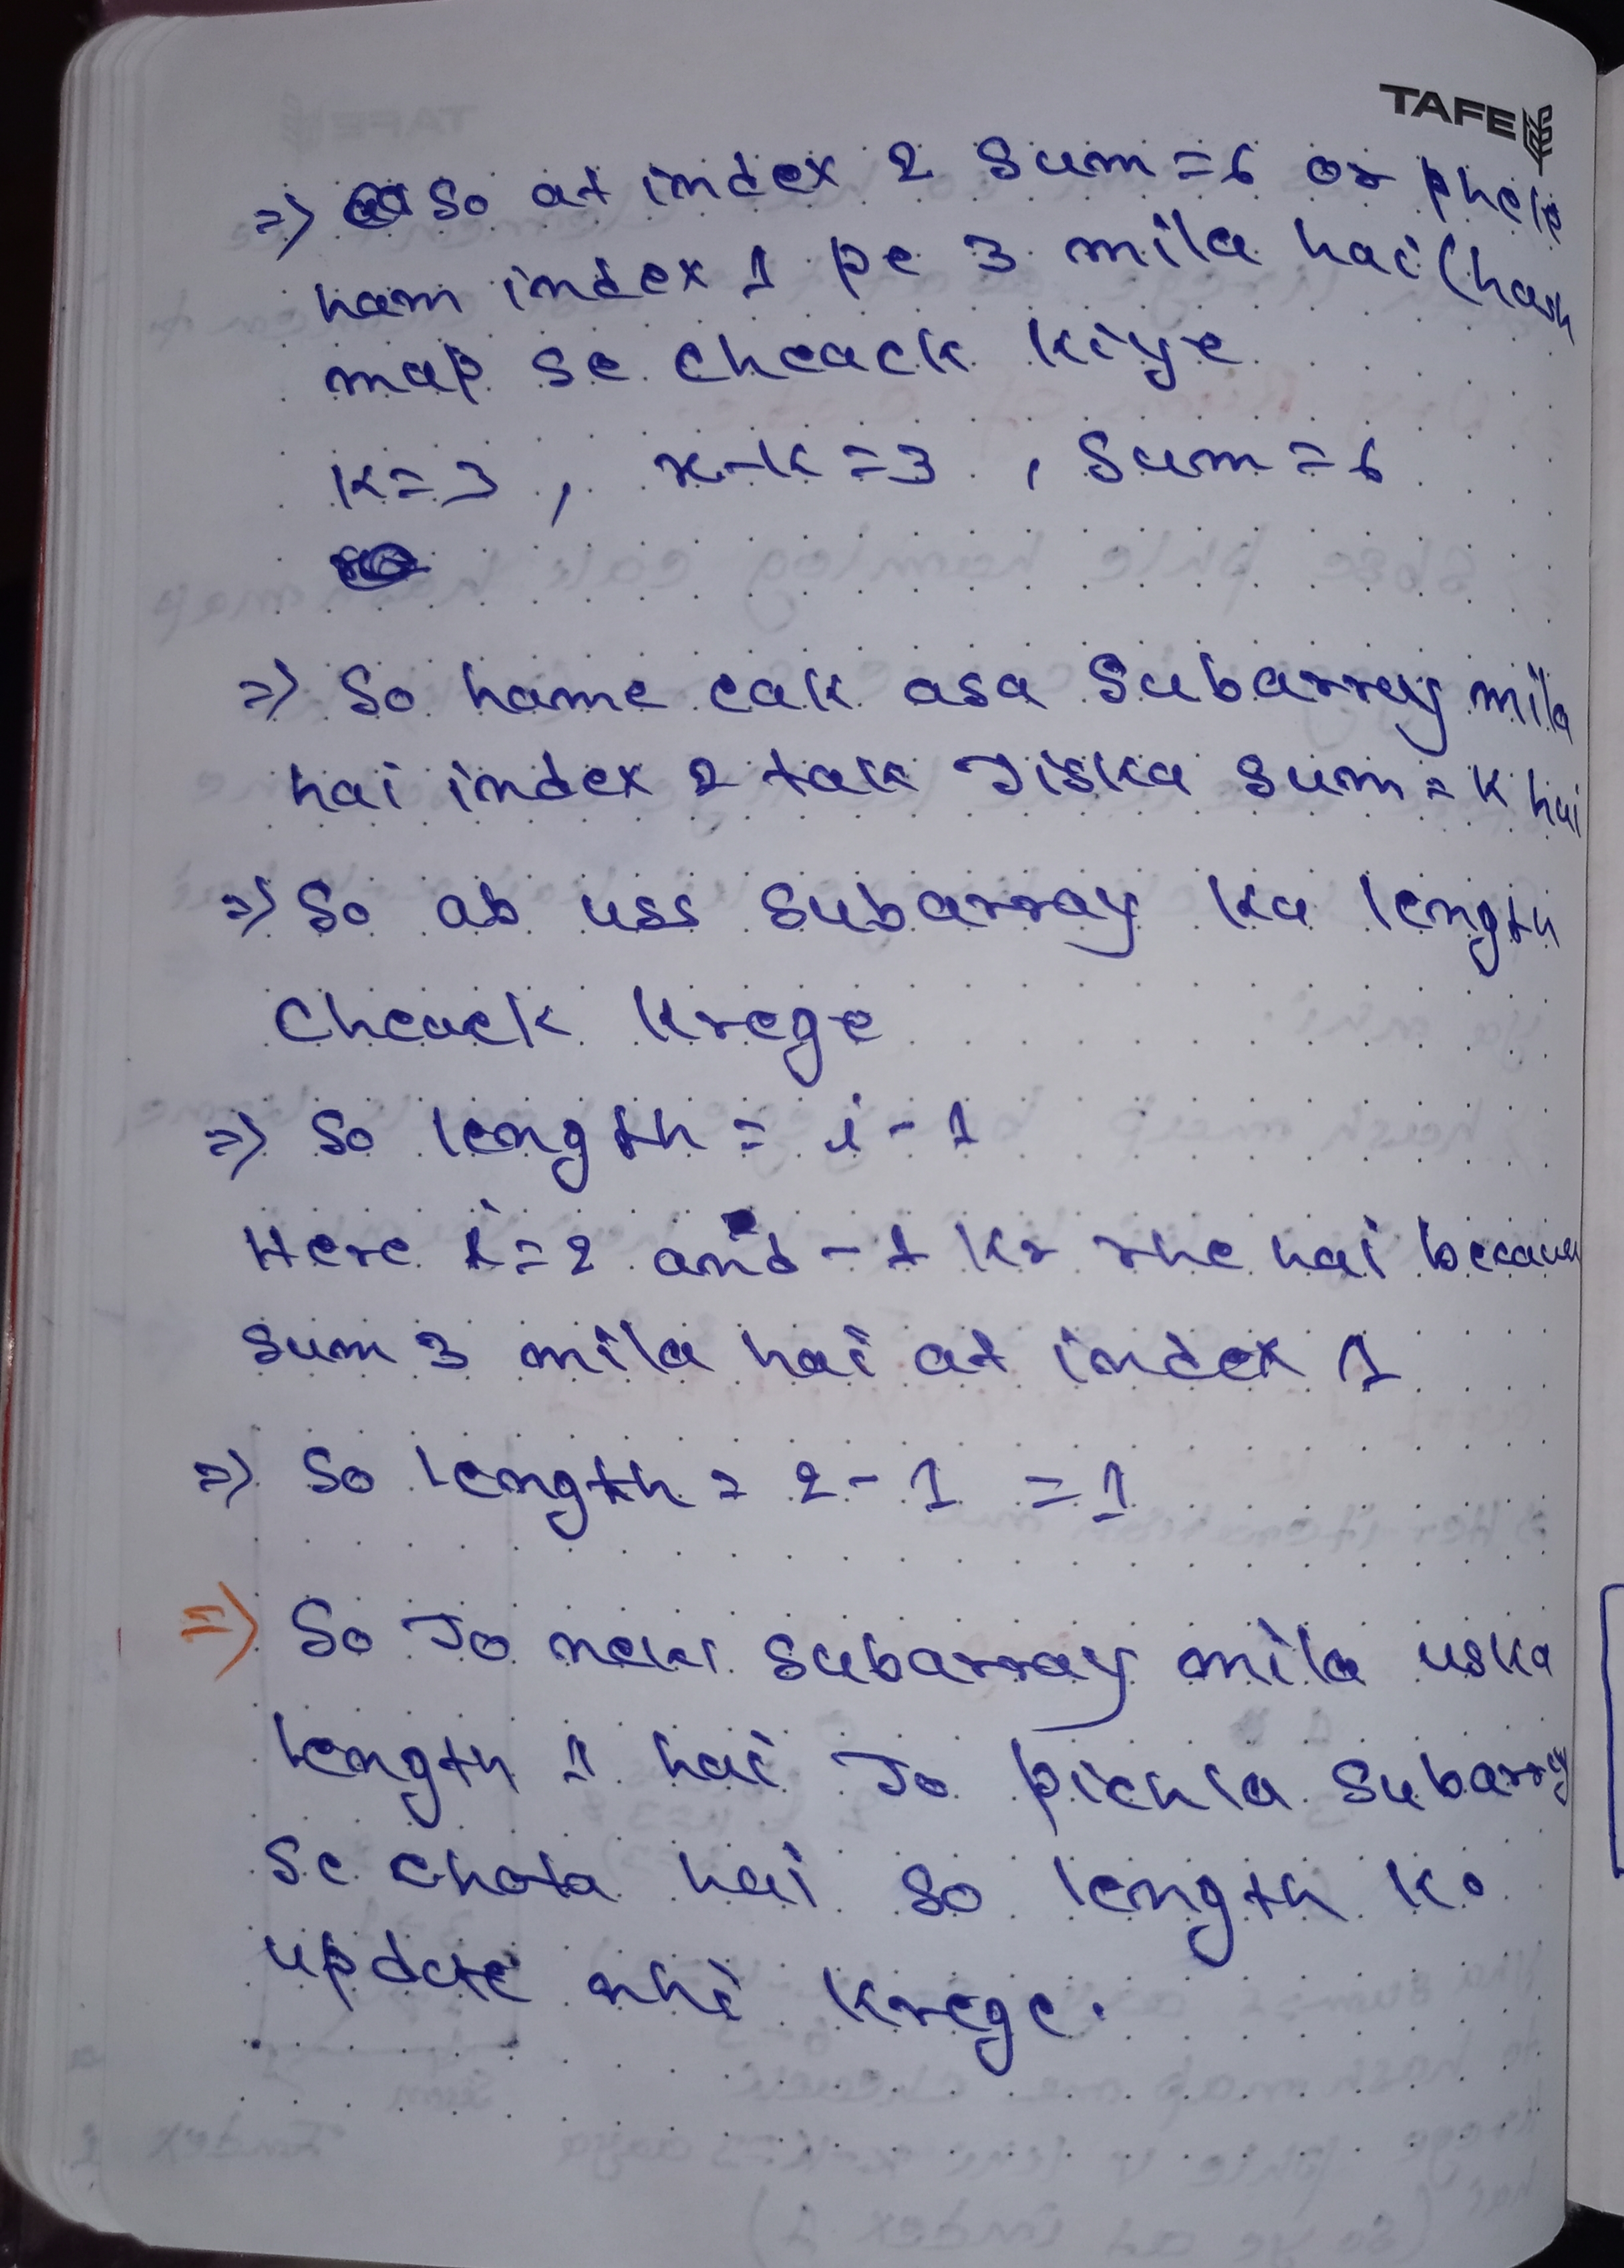 TAFE
=> So at index 2 sum = 6 or phele
ham index 1 pe 3 mila hai (hash
map se cheack kiye
K = 3 , x-k = 3 , sum = 6
=> So hame eak asa subarray mila
hai index 2 tak Jiska sum = K hai
=> So ab uss subarray ka length
Cheack krege
=> So length = i - 1
Here i = 2 and - 1 kr rhe hai because
sum 3 mila hai at index 1
=> So length = 2 - 1 = 1
=> So Jo new subarray mila uska
length 1 hai Jo pichla subarray
se chota hai so length ko
update nhi krege.